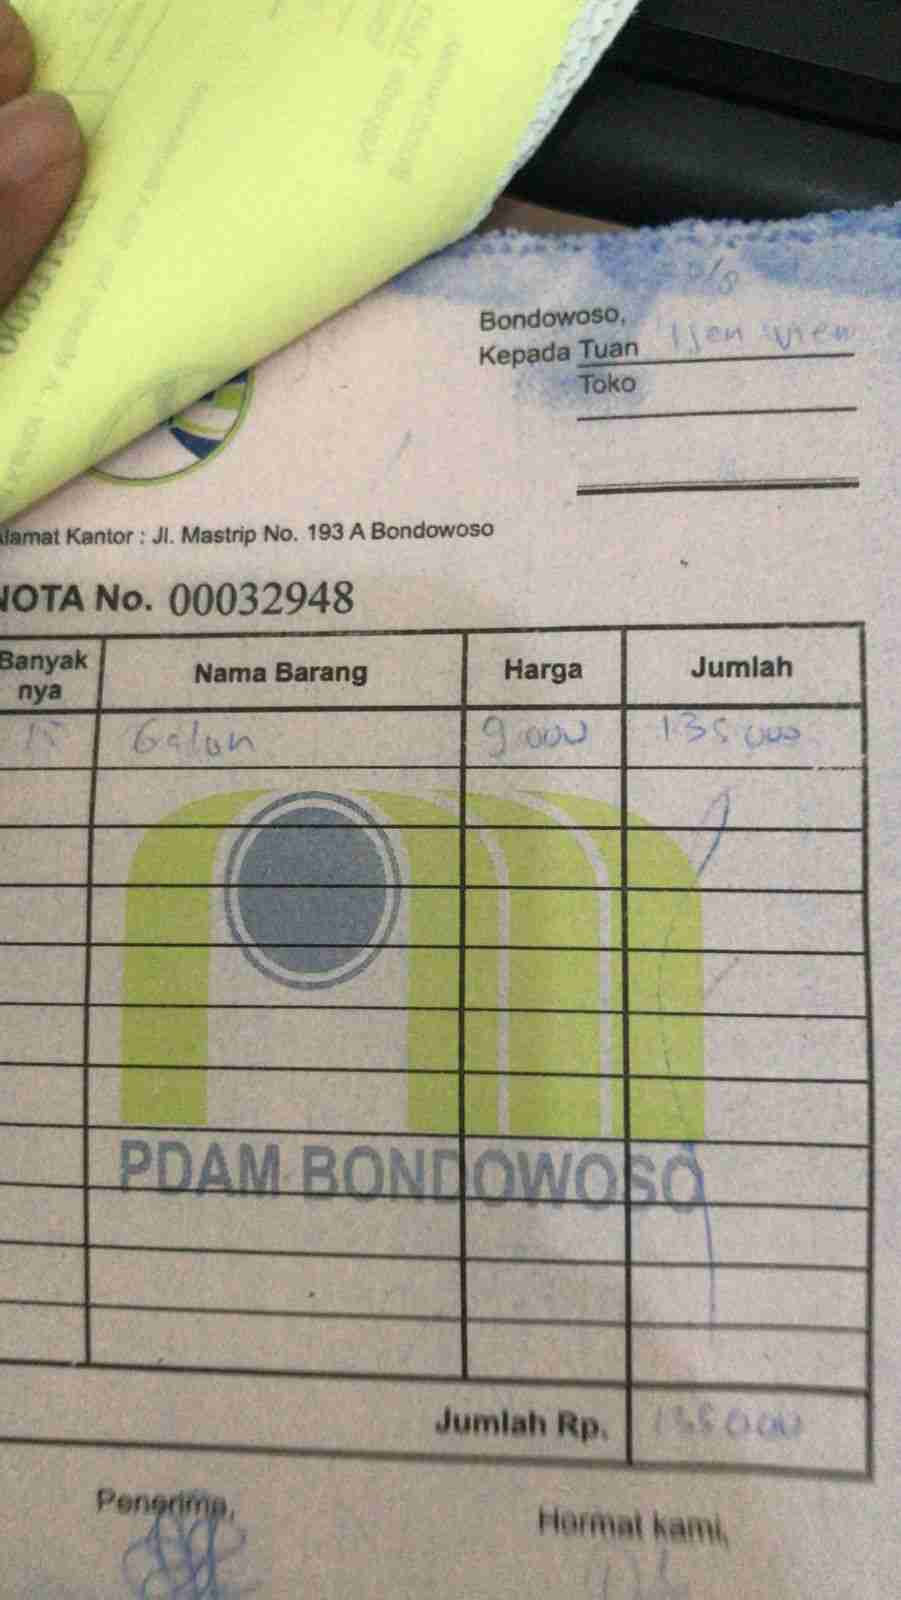 Bondowoso,
Kepada Tuan Ijen View
Toko
Alamat Kantor : Jl. Mastrip No. 193 A Bondowoso
NOTA No. 00032948
Banyak nya Nama Barang Harga Jumlah
15 Galon 9.000 135.000
PDAM BONDOWOSO
Jumlah Rp. 135.000
Penerima, Hormat kami,